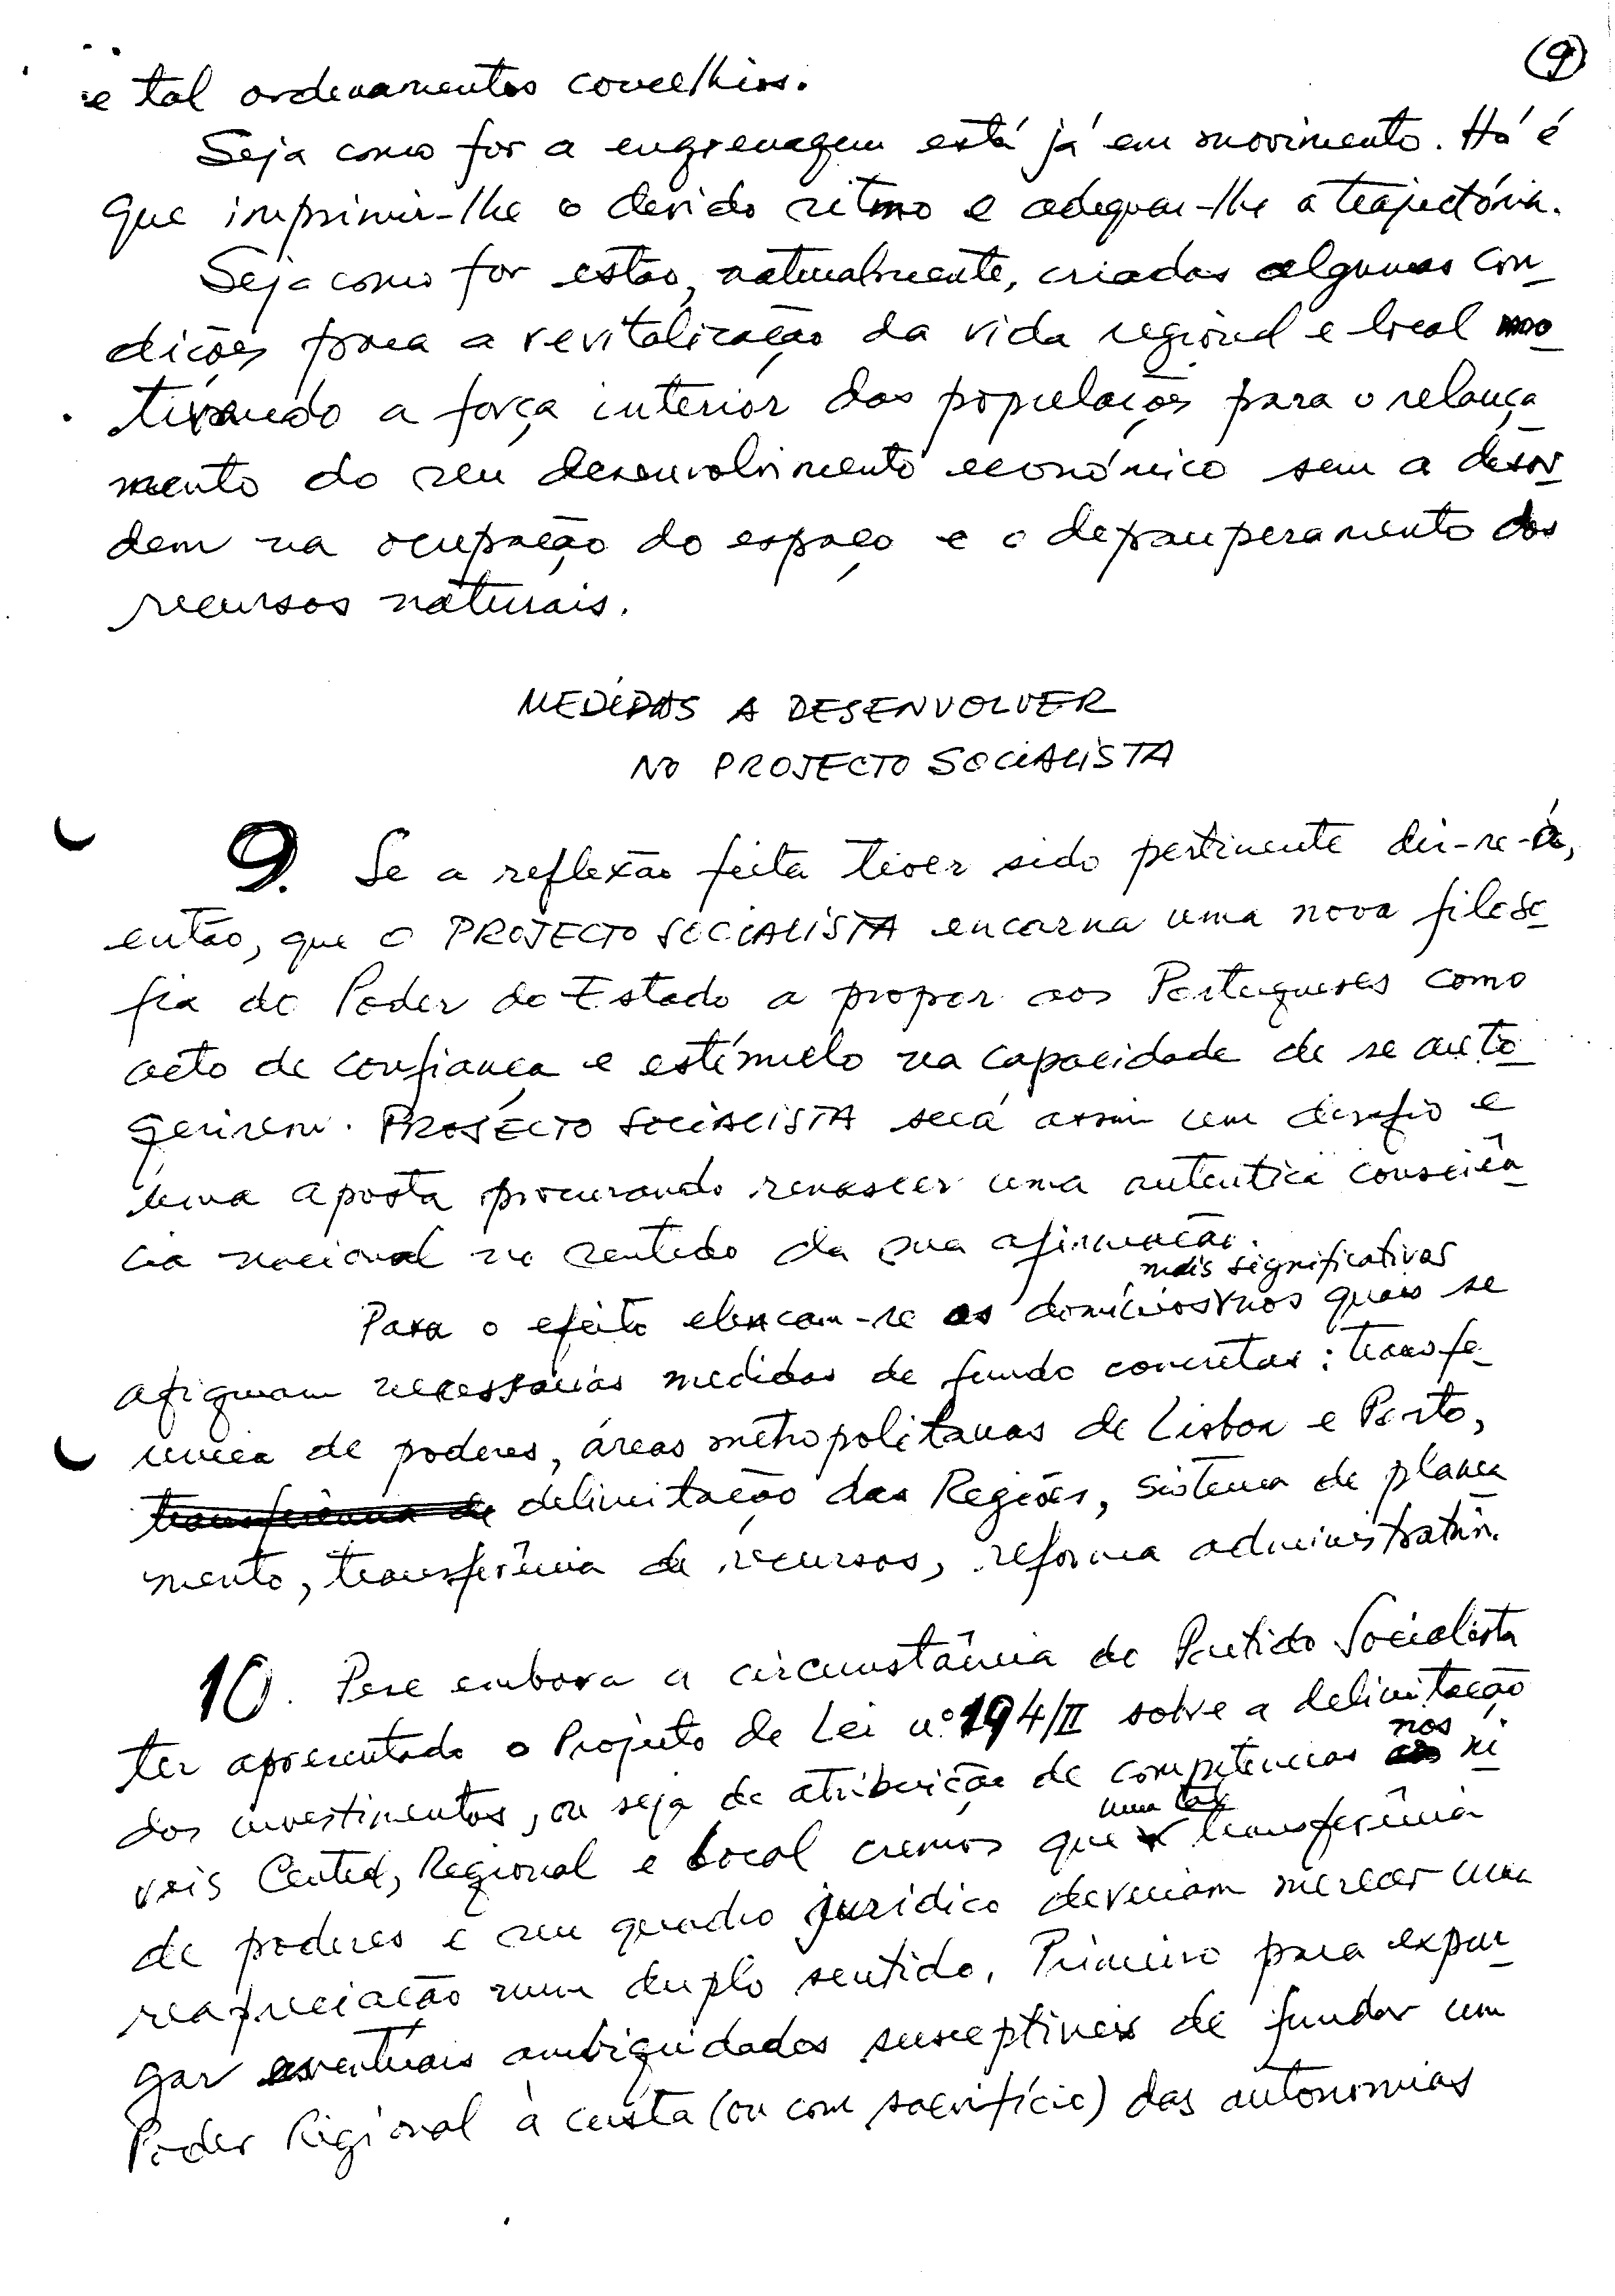 9
e tal ordenamentos concelhios.
Seja como for a engrenagem está já em movimento. Há é
que imprimir-lhe o devido ritmo e adequar-lhe a trajectória.
Seja como for estão, naturalmente, criadas algumas con
dições para a revitalização da vida regional e local mo
tivando a força interior das populações para o relança
mento do seu desenvolvimento económico sem a desor
dem na ocupação do espaço e o depauperamento dos
recursos naturais.
MEDIDAS A DESENVOLVER
NO PROJECTO SOCIALISTA
9. Se a reflexão feita tiver sido pertinente dir-se-á,
então, que o PROJECTO SOCIALISTA encarna uma nova filoso
fia do Poder do Estado a propor aos Portugueses como
acto de confiança e estímulo na capacidade de se auto
gerirem. PROJECTO SOCIALISTA será assim um desafio e
uma aposta procurando renascer uma autentica consciên
cia nacional no sentido da sua afirmação.
mais significativos
Para o efeito elencam-se os domínios nos quais se
afiguram necessárias medidas de fundo concretas: transfe
rência de poderes, áreas metropolitanas de Lisboa e Porto,
transferência de delimitação das Regiões, sistema de planea
mento, transferência de recursos, reforma administrativa.
10. Pese embora a circunstância do Partido Socialista
ter apresentado o Projecto de Lei nº 194/II sobre a delimitação
nos
dos investimentos, ou seja da atribuição de competencias aos ní
uma tal
veis Central, Regional e Local cremos que transferência
de poderes e seu quadro jurídico deveriam merecer uma
reapreciação num duplo sentido. Primeiro para expur
gar eventuais ambiguidades susceptiveis de fundar um
Poder Regional à custa (ou com sacrifício) das autonomias